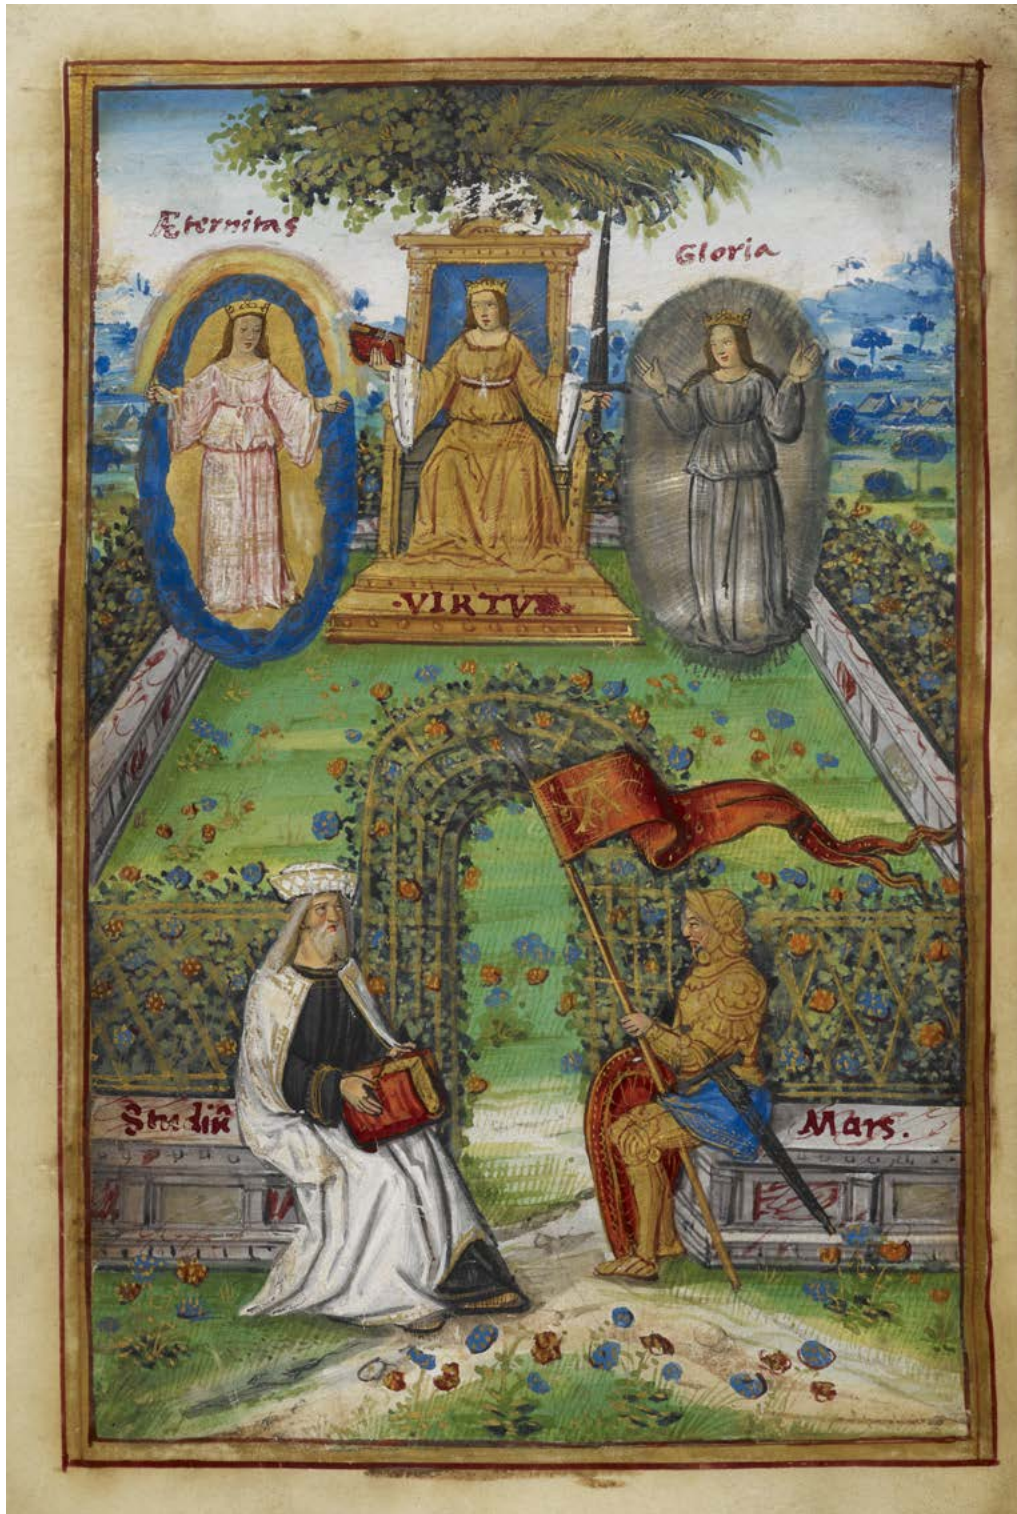 Æternitas
Gloria
·VIRTVS·
Studiu͂
Mars.